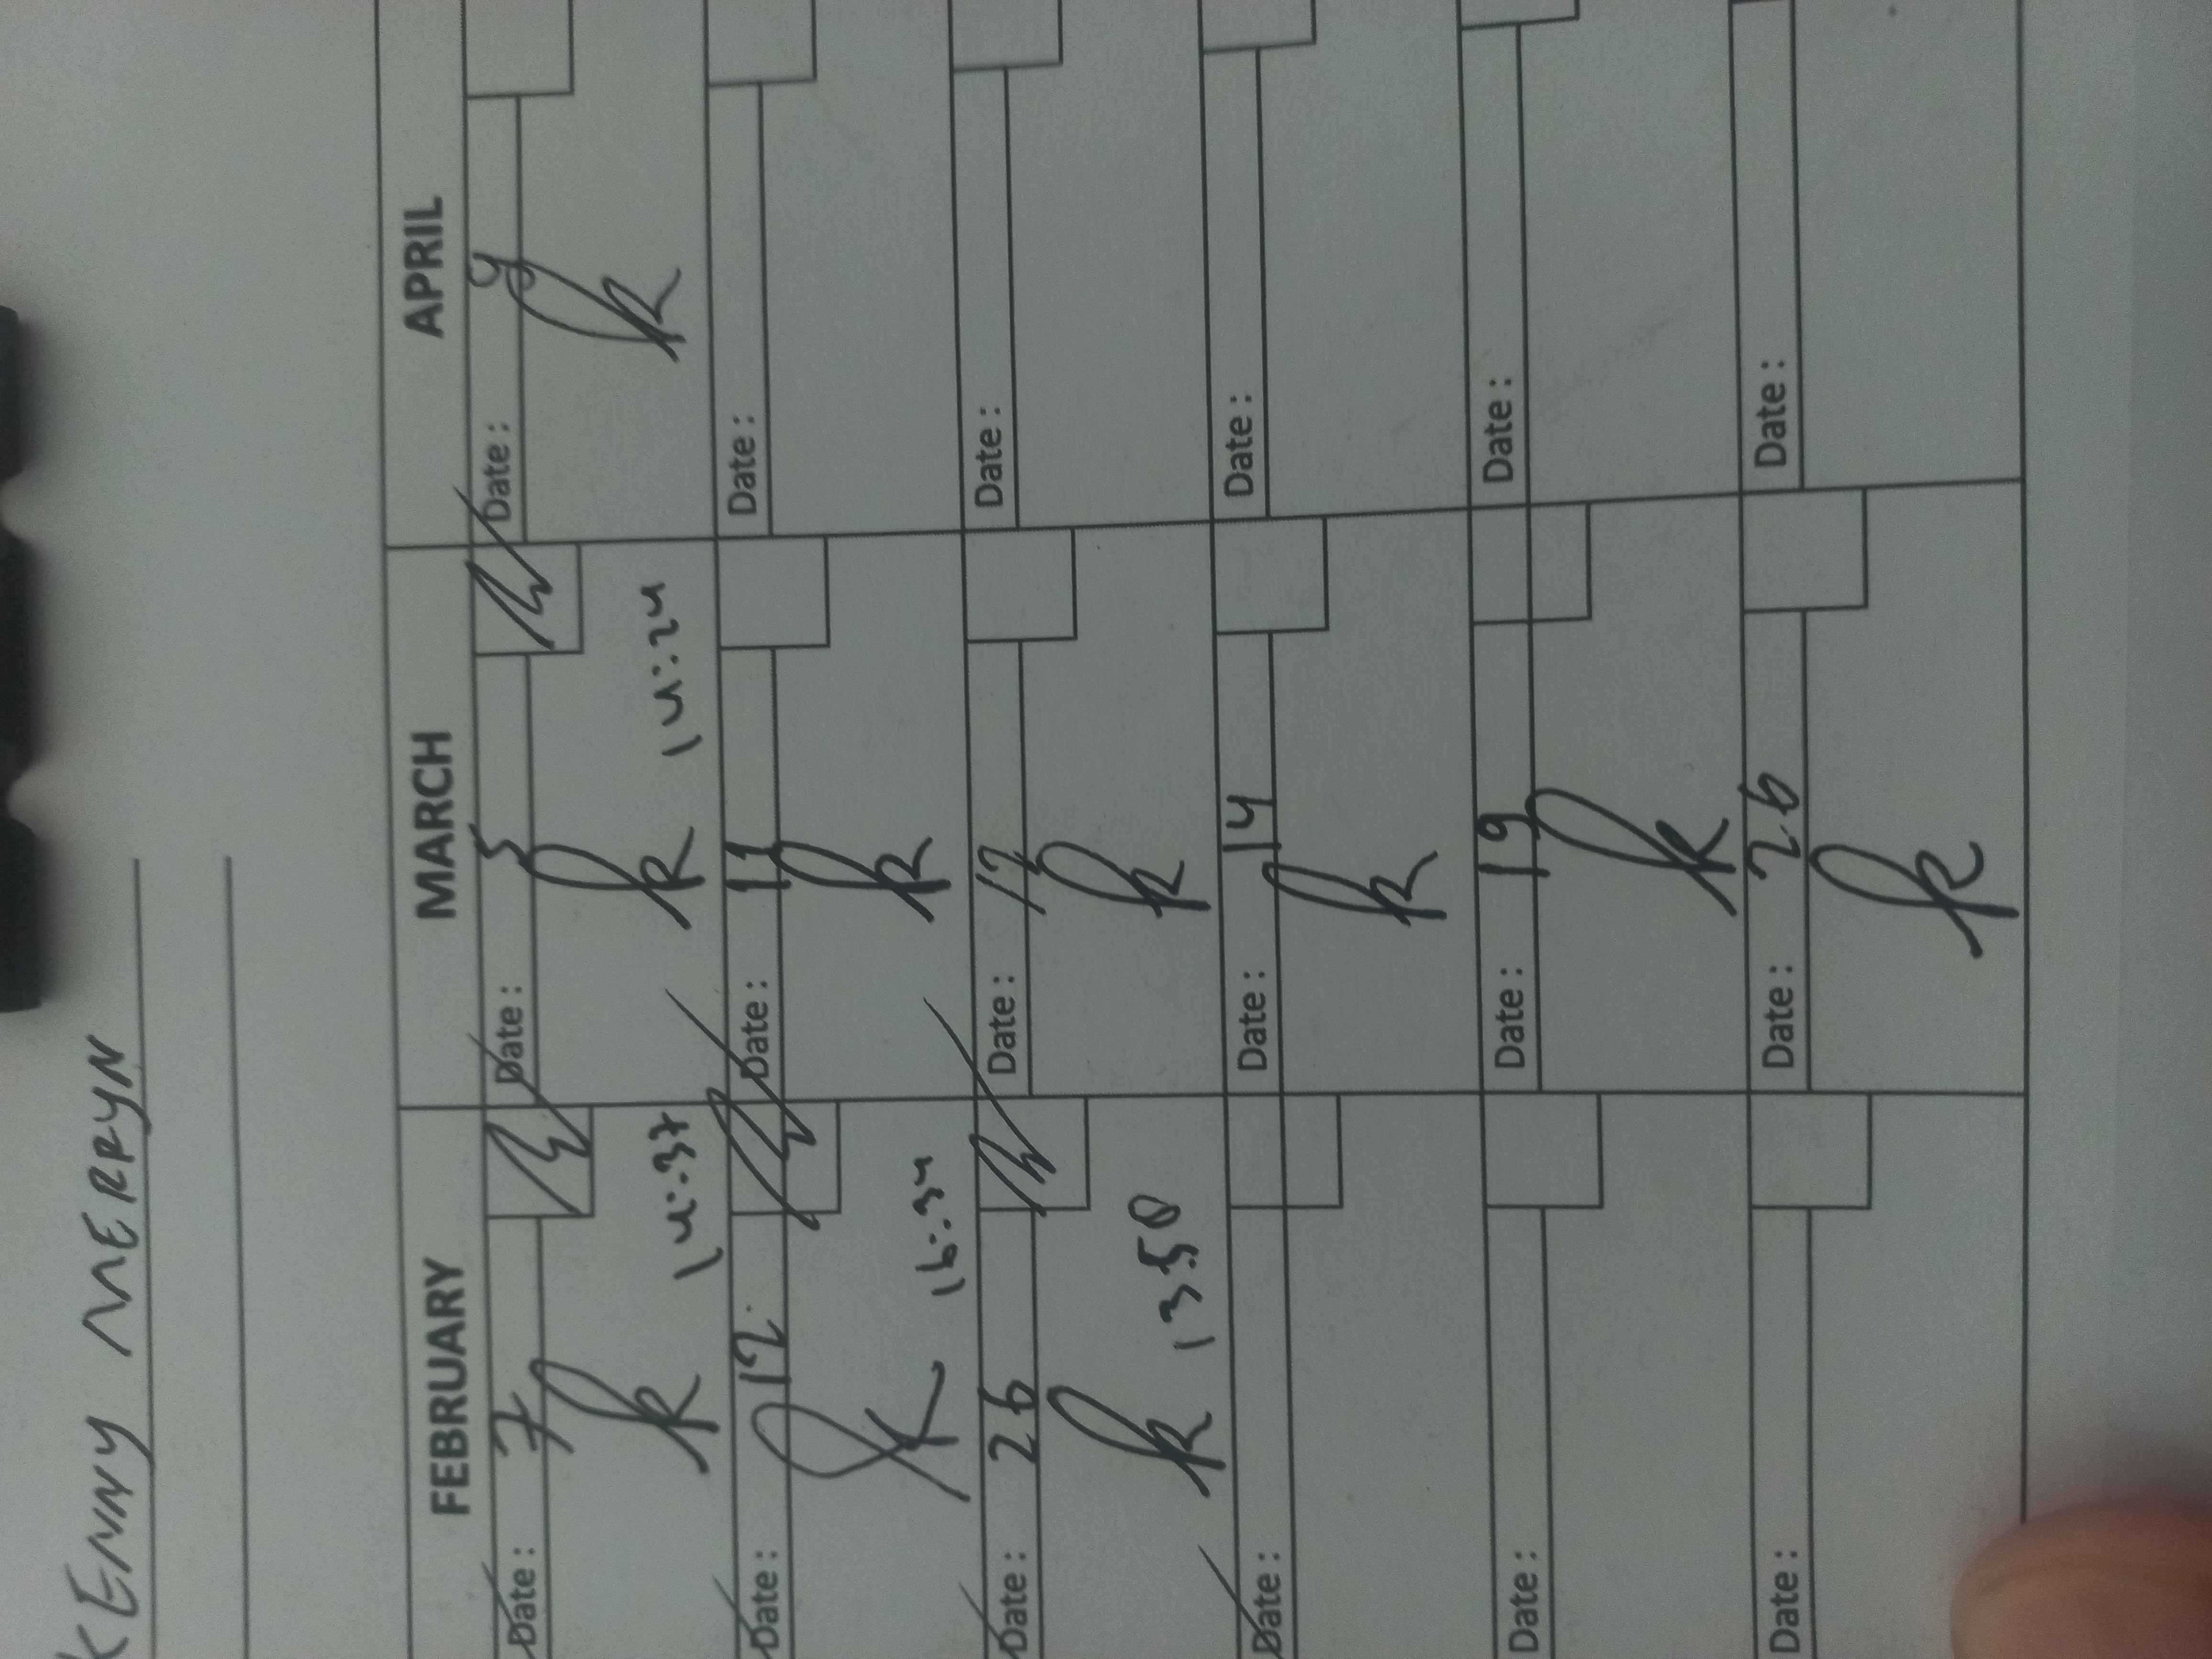 KENNY MERRYN
FEBRUARY MARCH APRIL
Date: 7 Date: 5 Date: 9
14:37 14:24
Date: 12 Date: 11 Date:
16:34
Date: 26 Date: 12 Date:
13:50
Date: Date: 14 Date:
Date: Date: 19 Date:
Date: Date: 26 Date: